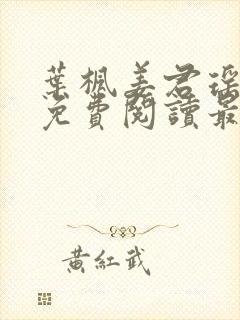 葉楓姜君瑤
免費閱讀最
黃紅武